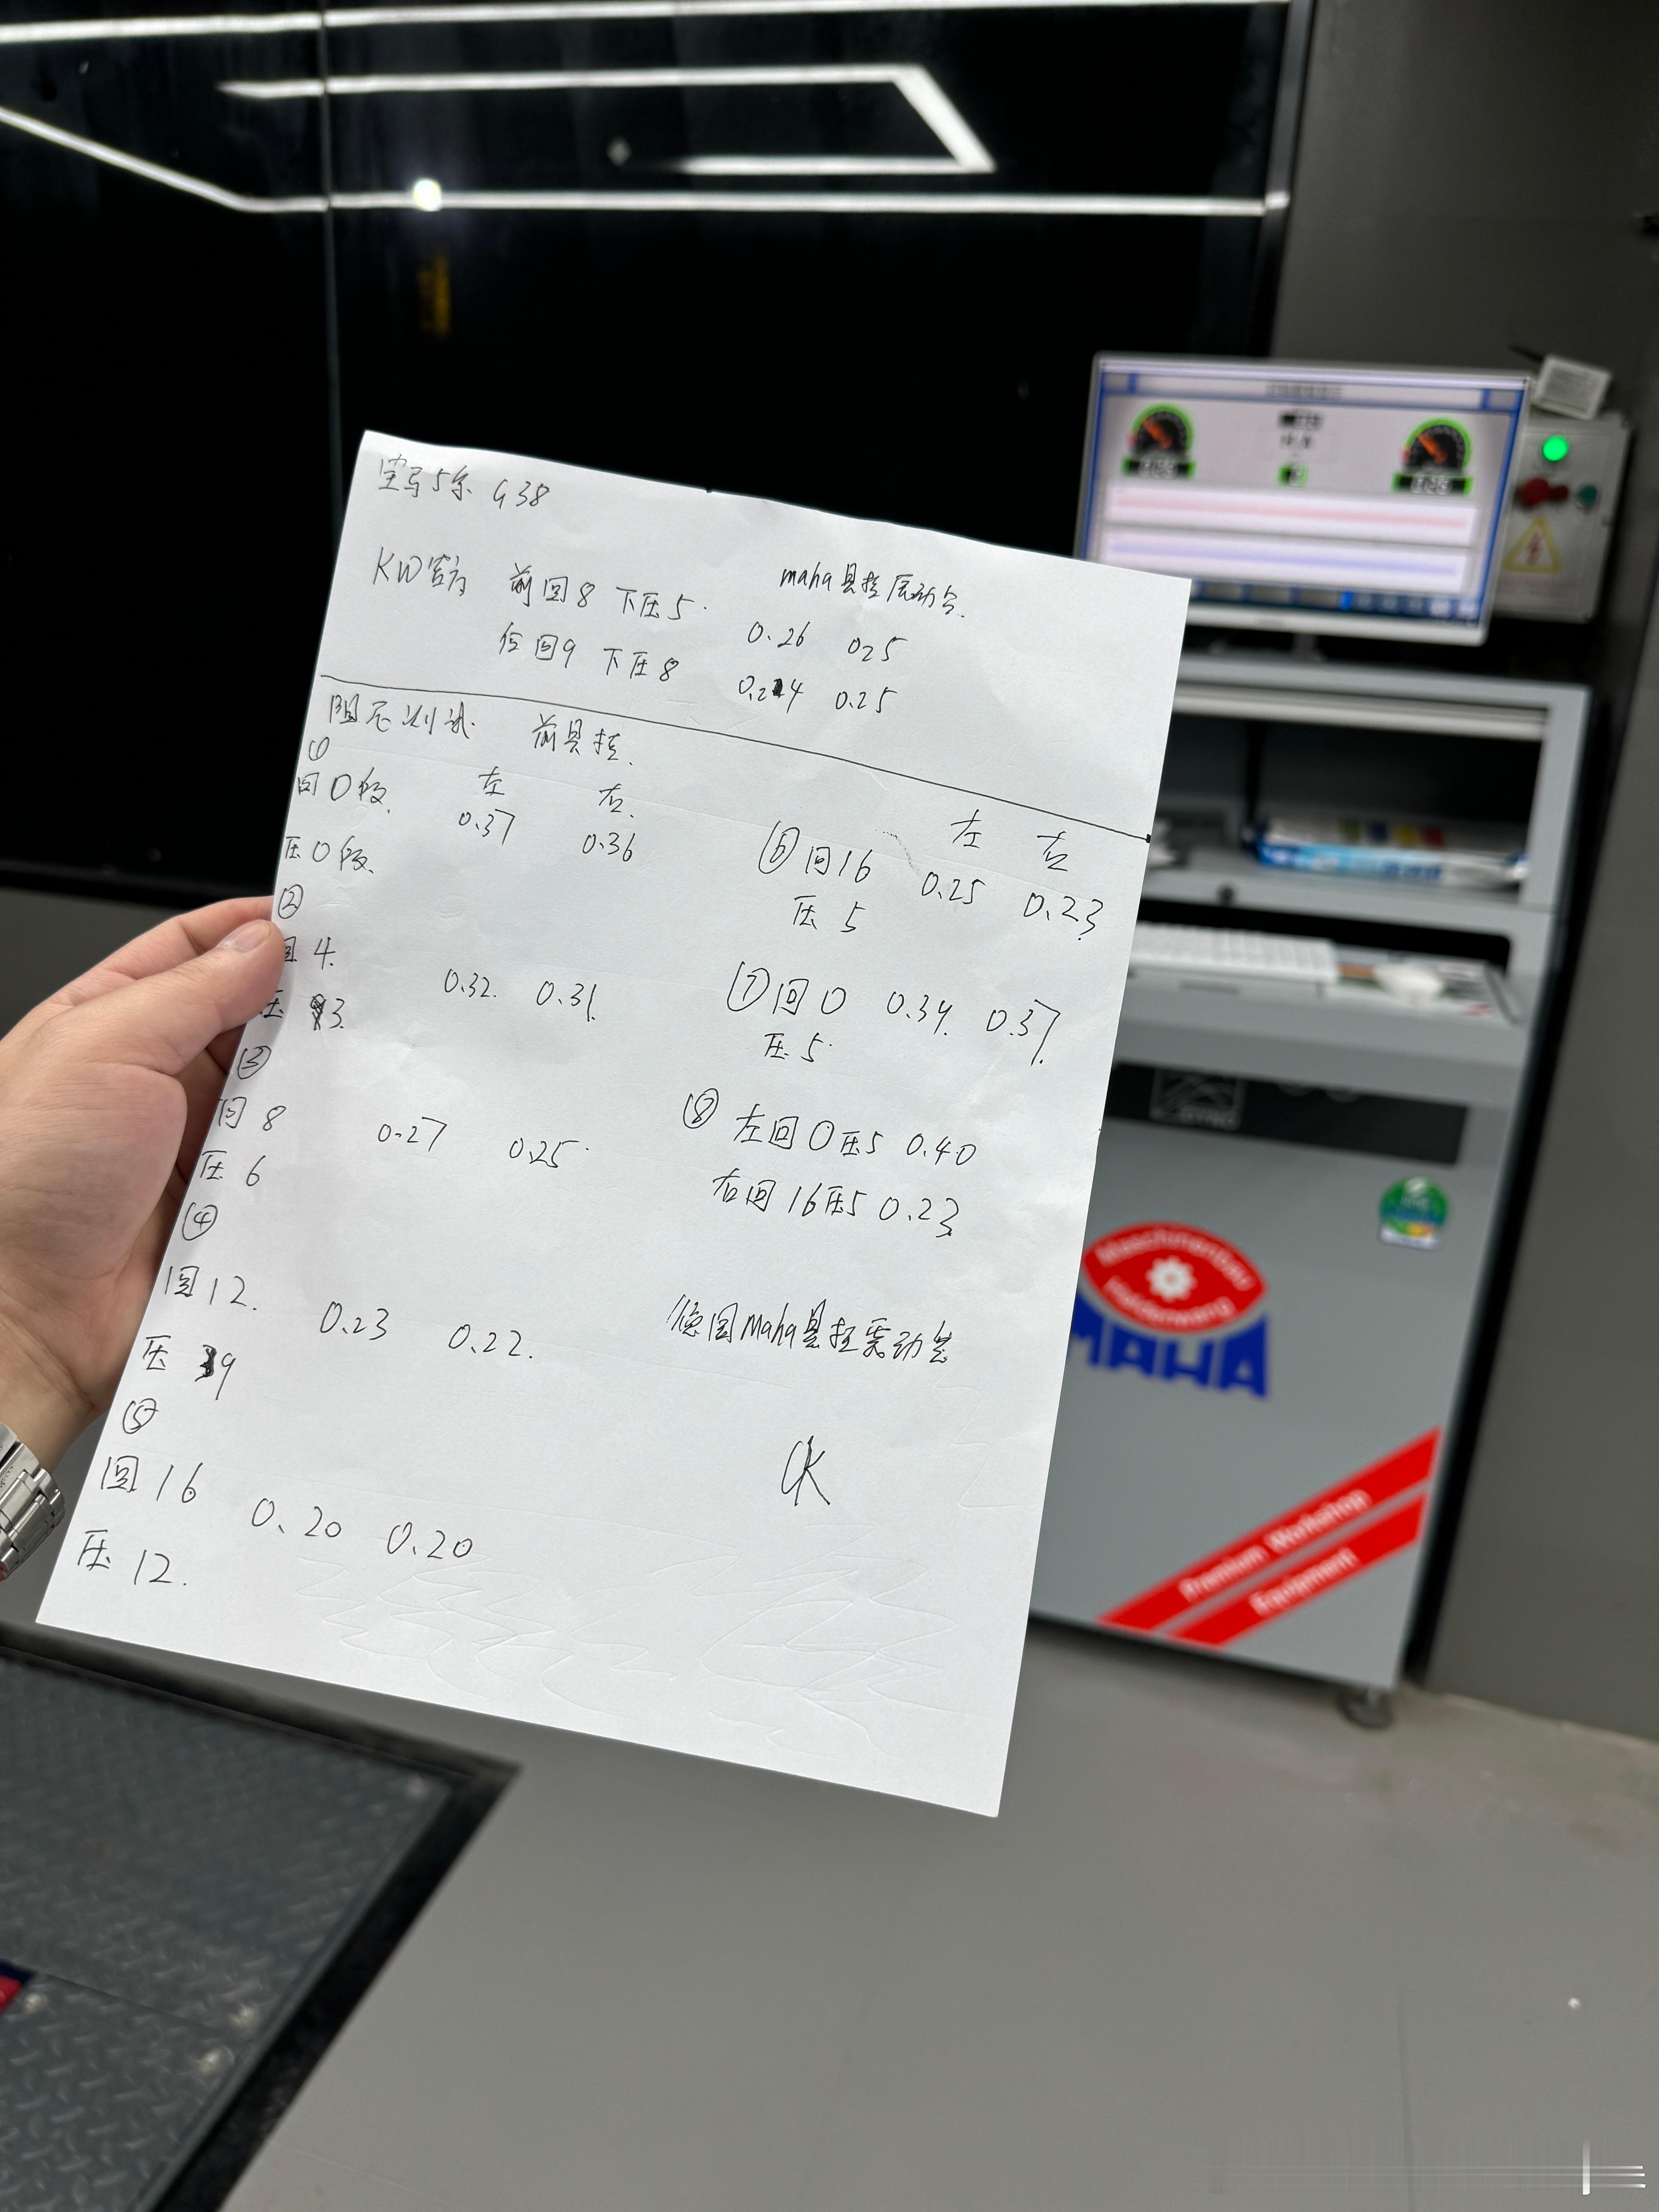 宝马5系 G38
KW官方 前回8 下压5.
后回9 下压8
maha悬挂震动台.
0.26 025
0.24 0.25
阻尼测试. 前悬挂.
①
左 右.
回0段. 0.37 0.36
压0段.
②
回4. 0.32. 0.31.
压3.
③
回8 0.27 0.25.
压6
④
回12. 0.23 0.22.
压9
⑤
回16 0.20 0.20
压12.
左 右
⑥回16 0.25 0.23
压5
⑦回0 0.39. 0.37.
压5.
⑧左回0压5 0.40
右回16压5 0.23
德国Maha悬挂震动台
OK
Maschinenbau
Haldenwang
MAHA
Premium Workshop
Equipment